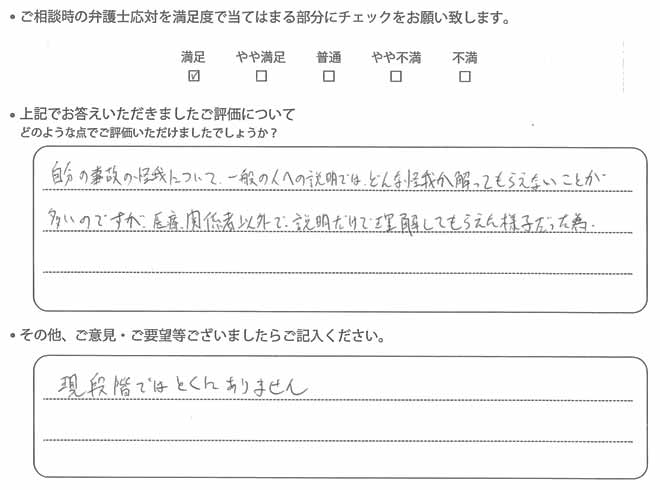 • ご相談時の弁護士応対を満足度で当てはまる部分にチェックをお願い致します。
満足 やや満足 普通 やや不満 不満
☑ □ □ □ □
• 上記でお答えいただきましたご評価について
どのような点でご評価いただけましたでしょうか？
自分の事故の怪我について、一般の人への説明では、どんな怪我か解ってもらえないことが
多いのですが、医療関係者以外で、説明だけで理解してもらえた様子だった為。
• その他、ご意見・ご要望等ございましたらご記入ください。
現段階ではとくにありません